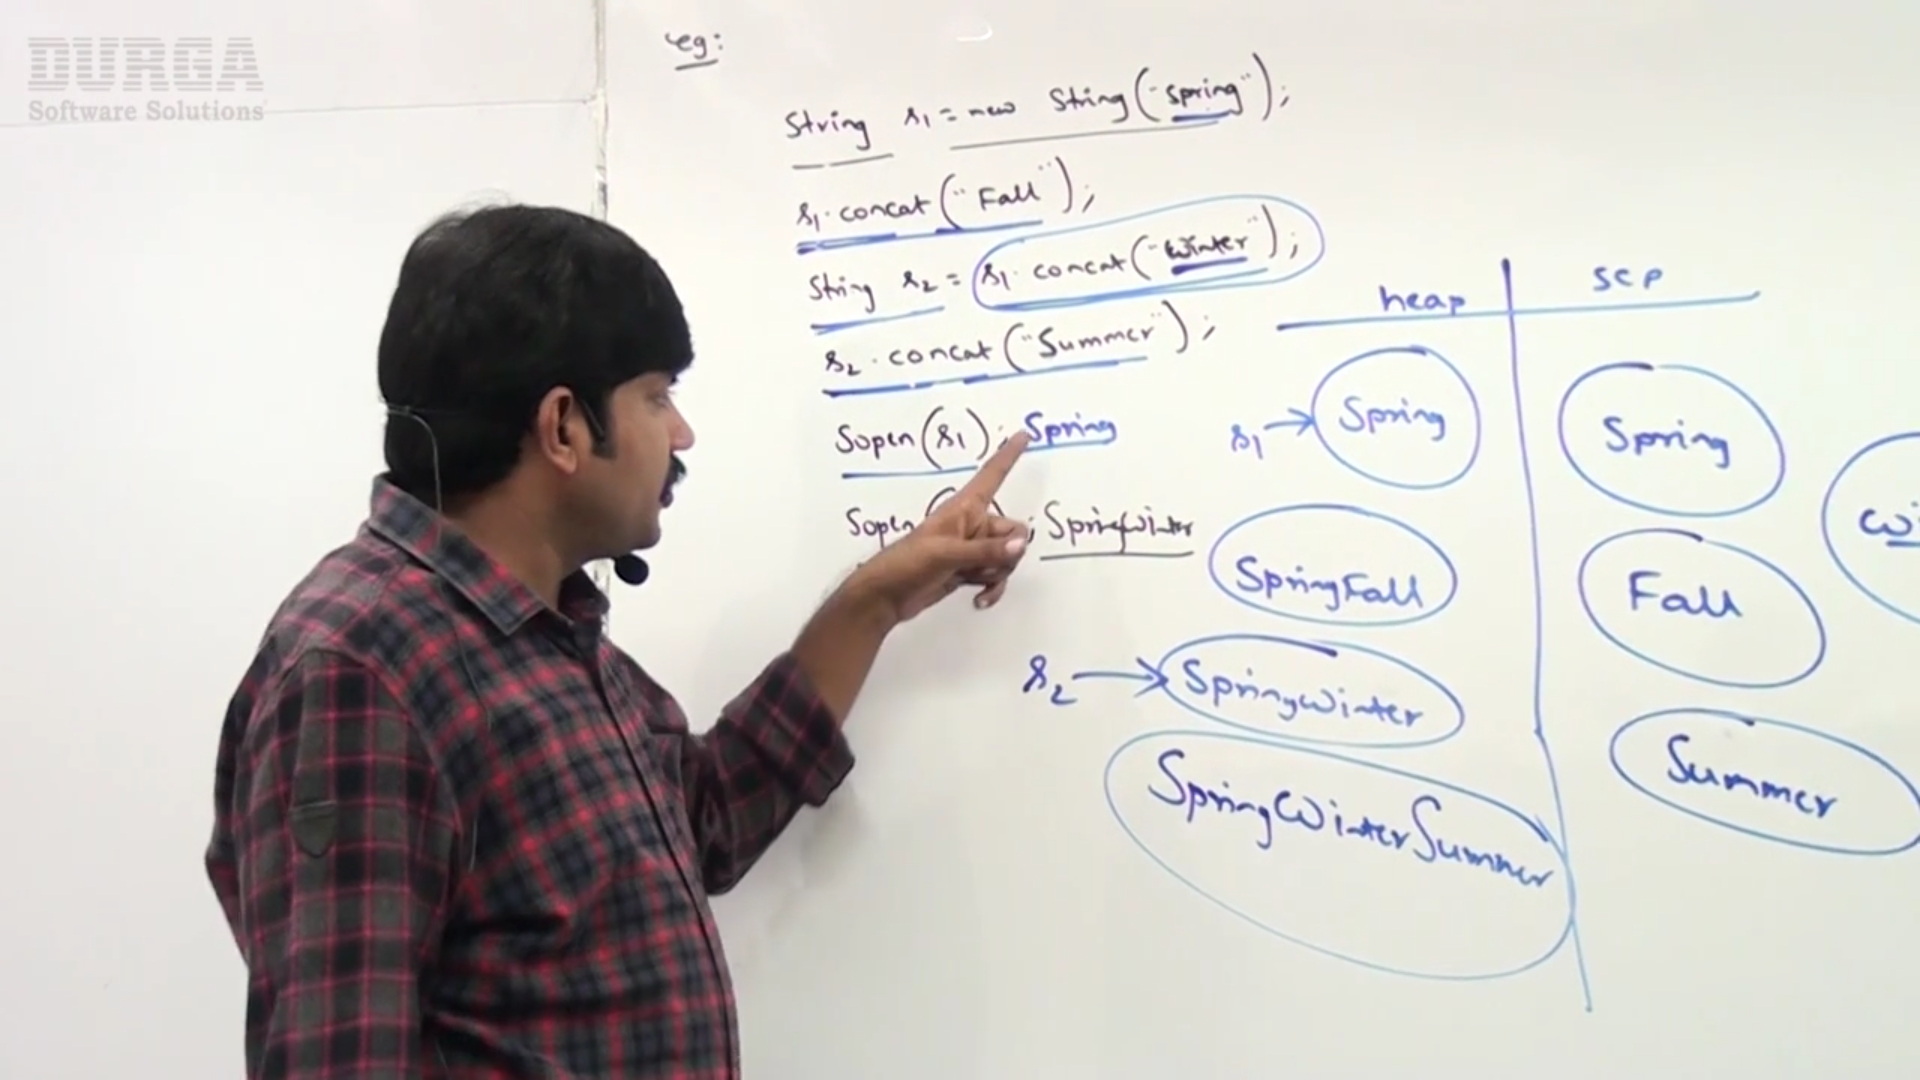 DURGA
Software Solutions
eg:
String s1 = new String("spring");
s1.concat("Fall");
String s2 = s1.concat("Winter");
s2.concat("Summer");
Sopln(s1); Spring
Sopln( ; SpringWinter
heap scp
s1 → Spring Spring
SpringFall Fall
s2 → SpringWinter
SpringWinterSummer Summer